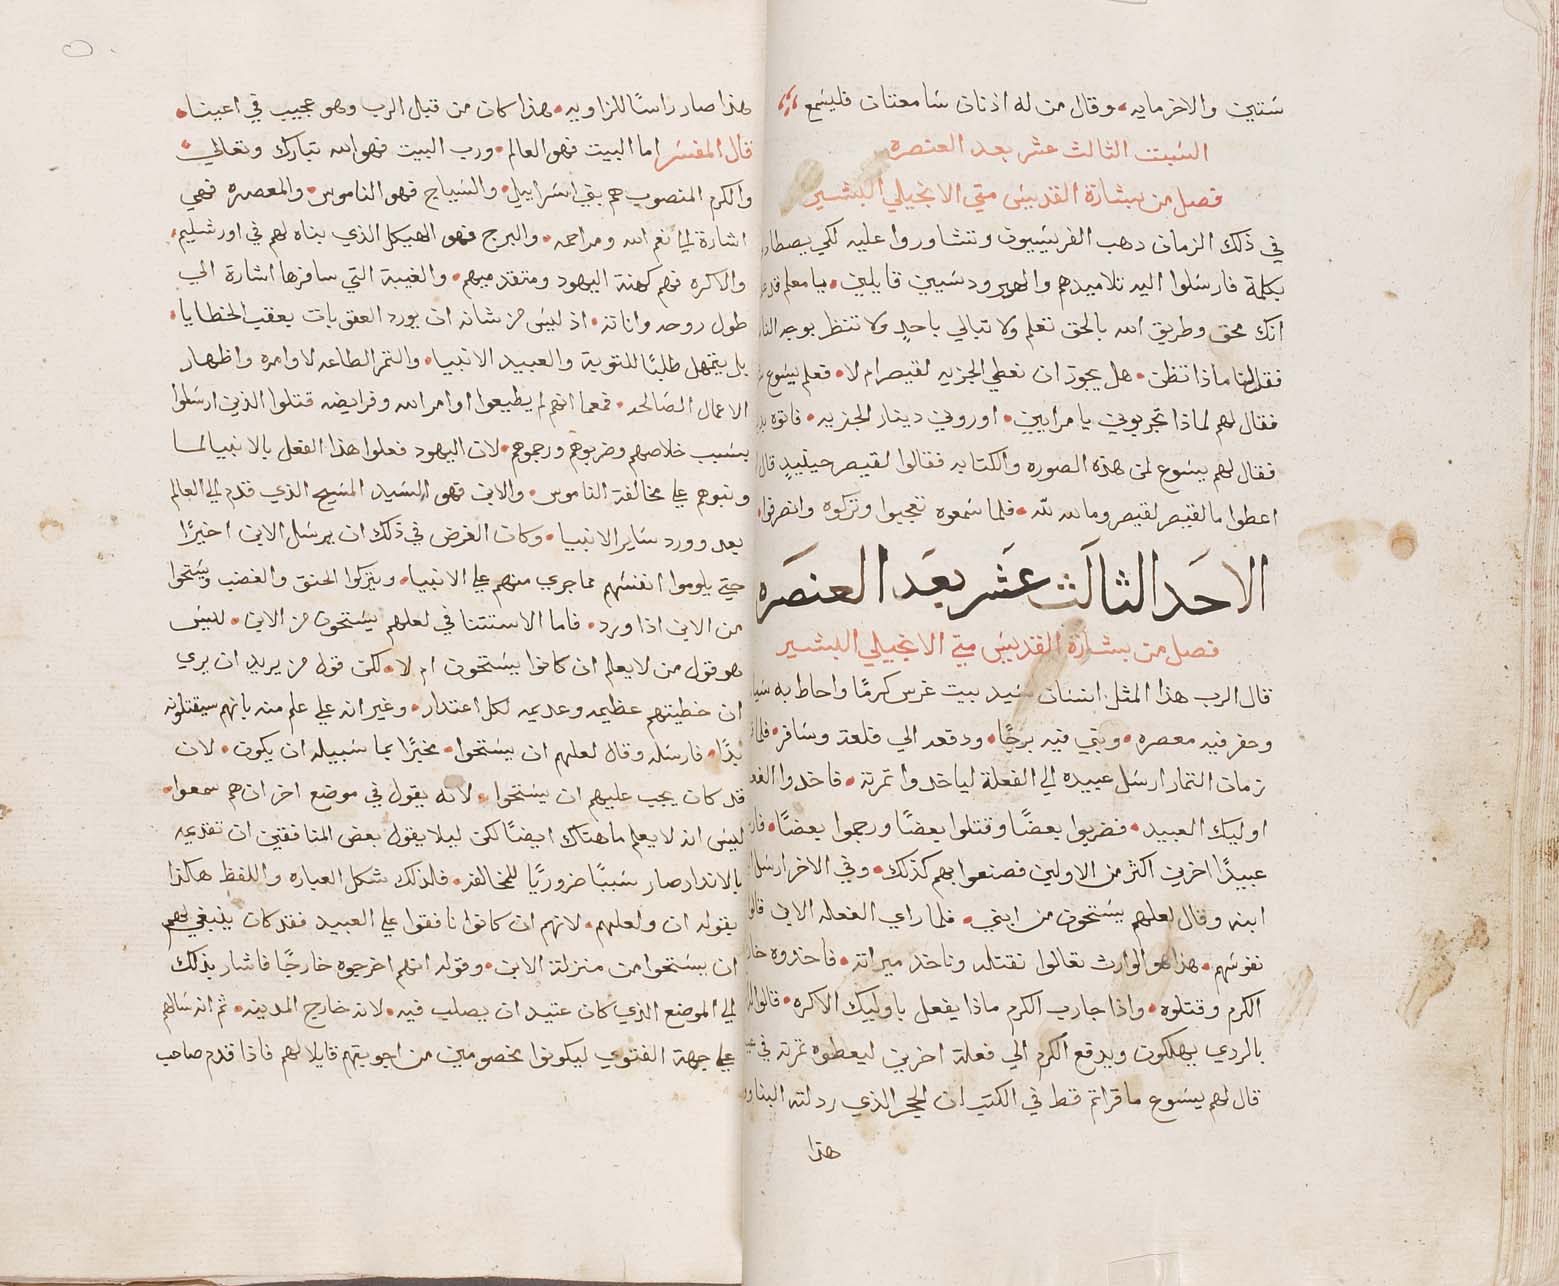 ستين والاخر مايه، وقال من له اذنان سامعتان فليسمع
السبت الثالث عشر بعد العنصره
فصل من بشارة القديس متي الانجيلي البشير
في ذلك الزمان دهب الفريسيون وتشاوروا عليه لكي يصطاروه
بكلمة فارسلوا اليه تلاميدهم والهيرودسيين قايلين. يا معلم قد
انك محق وطريق الله بالحق تعلم ولا تبالي باحدٍ ولا تنظر بوجه
فقل لنا ماذا تظن. هل يجوز ان نعطي الجزيه لقيصر ام لا. فعلم يسوع
فقال لهم لماذا تجربوني يا مرايين. اوروني دينار الجزيه. فاتوه
فقال لهم يسوع لمن هذه الصوره والكتابه فقالوا لقيصر حينيدٍ قال
اعطوا ما لقيصر لقيصر وما لله لله. فلما سمعوه تعجبوا وتركوه وانصرفوا
الاحَد الثالَث عَشر بعَد العنصَره
فصل من بشارة القديس متي الانجيلي البشير
قال الرب هذا المثل انسان سيد بيت غرس كرمًا واحاط به
وحفر فيه معصره. وبني فيه برجًا. ودفعه الي فلعة وسافر.
زمان الثمار ارسل عبيده الي الفعلة لياخدوا ثمرته. فاخدوا
اوليك العبيد. فضربوا بعضًا وقتلوا بعضًا ورجموا بعضًا.
عبيدًا اخرين اكثر من الاولين فصنعوا بهم كذلك. وفي الاخر ارسل
ابنه وقال لعلهم يستحون من ابني. فلما راي الفعله الابن
نفوسهم. هذا هو الوارث تعالوا نقتله وناخد ميراثه. فاخدوه
الكرم وقتلوه. واذا جا رب الكرم ماذا يفعل باوليك الاكره.
بالردي يهلكون ويدفع الكرم الي فعلة اخرين ليعطوه ثمرته في
قال لهم يسوع ما قراتم قط في الكتب ان الحجر الذي ردلته
هذا
هذا صار راسًا للزاويه. هذا كان من قبل الرب وهو عجيب في اعيننا.
قال المفسر اما البيت فهو العالم. ورب البيت فهو الله تبارك وتعالي
والكرم المنصوب هم بني اسراييل. والسياج فهو الناموس. والمعصره فهي
اشارة الي نعم الله ومراحمه. والبرج فهو الهيكل الذي بناه لهم في اورشليم.
والاكره فهم كهنة اليهود ومتقدميهم. والغيبة التي سافرها اشارة الي
طول روحه واناته. اذ ليس من شانه ان يورد العقوبات بعقب الخطايا.
بل يتمهل طلبًا للتوبة والعبيد الانبيا. والثمر الطاعه لاوامره واظهار
الاعمال الصالحه. فمعما انهم لم يطيعوا اوامر الله وفرايضه قتلوا الذين ارسلوا
بسبب خلاصهم وضربوهم ورجموهم. لان اليهود فعلوا هذا الفعل بالانبيا لما
ونبوهم علي مخالفة الناموس. والابن فهو السيد المسيح الذي قدم الي العالم
بعد وورد ساير الانبيا. وكان الغرض في ذلك ان يرسل الابن اخيرًا
حتي يلوموا انفسهم مما جري منهم علي الانبيا. ويتركوا الحنق والغضب ويستحوا
من الابن اذا ورد. فاما الاستثنا في لعلهم يستحون من الابن. ليس
هو قول من لا يعلم ان كانوا يستحون ام لا. لكن قول من يريد ان يري
ان خطيتهم عظيمه وعديمه لكل اعتدار. وغير انه علي علم منه بانهم سيقتلونه
بدًا. فارسله وقال لعلهم ان يستحوا. مخبرًا بما سبيله ان يكون. لان
قد كان يجب عليهم ان يستحوا. لانه يقول في موضع اخر ان هم سمعوا.
ليس انه لا يعلم ما هناك ايضًا لكن ليلا يقول بعض المنافقين ان تقديمه
بالاندار صار سببًا ضروريًا للمخالفه. فلذلك شكل العباره واللفظ هاكذا
بقوله ان ولعلهم. لانهم ان كانوا نافقوا علي العبيد فقد كان ينبغي لهم
ان يستحوا من منزلة الابن. وقوله انهم اخرجوه خارجًا فاشار بذلك
الي الموضع الذي كان عتيد ان يصلب فيه. لانه خارج المدينه. ثم انه سالهم
علي جهة الفتوي ليكونوا مخصومين من اجوبتهم قايلا لهم فاذا قدم صاحب